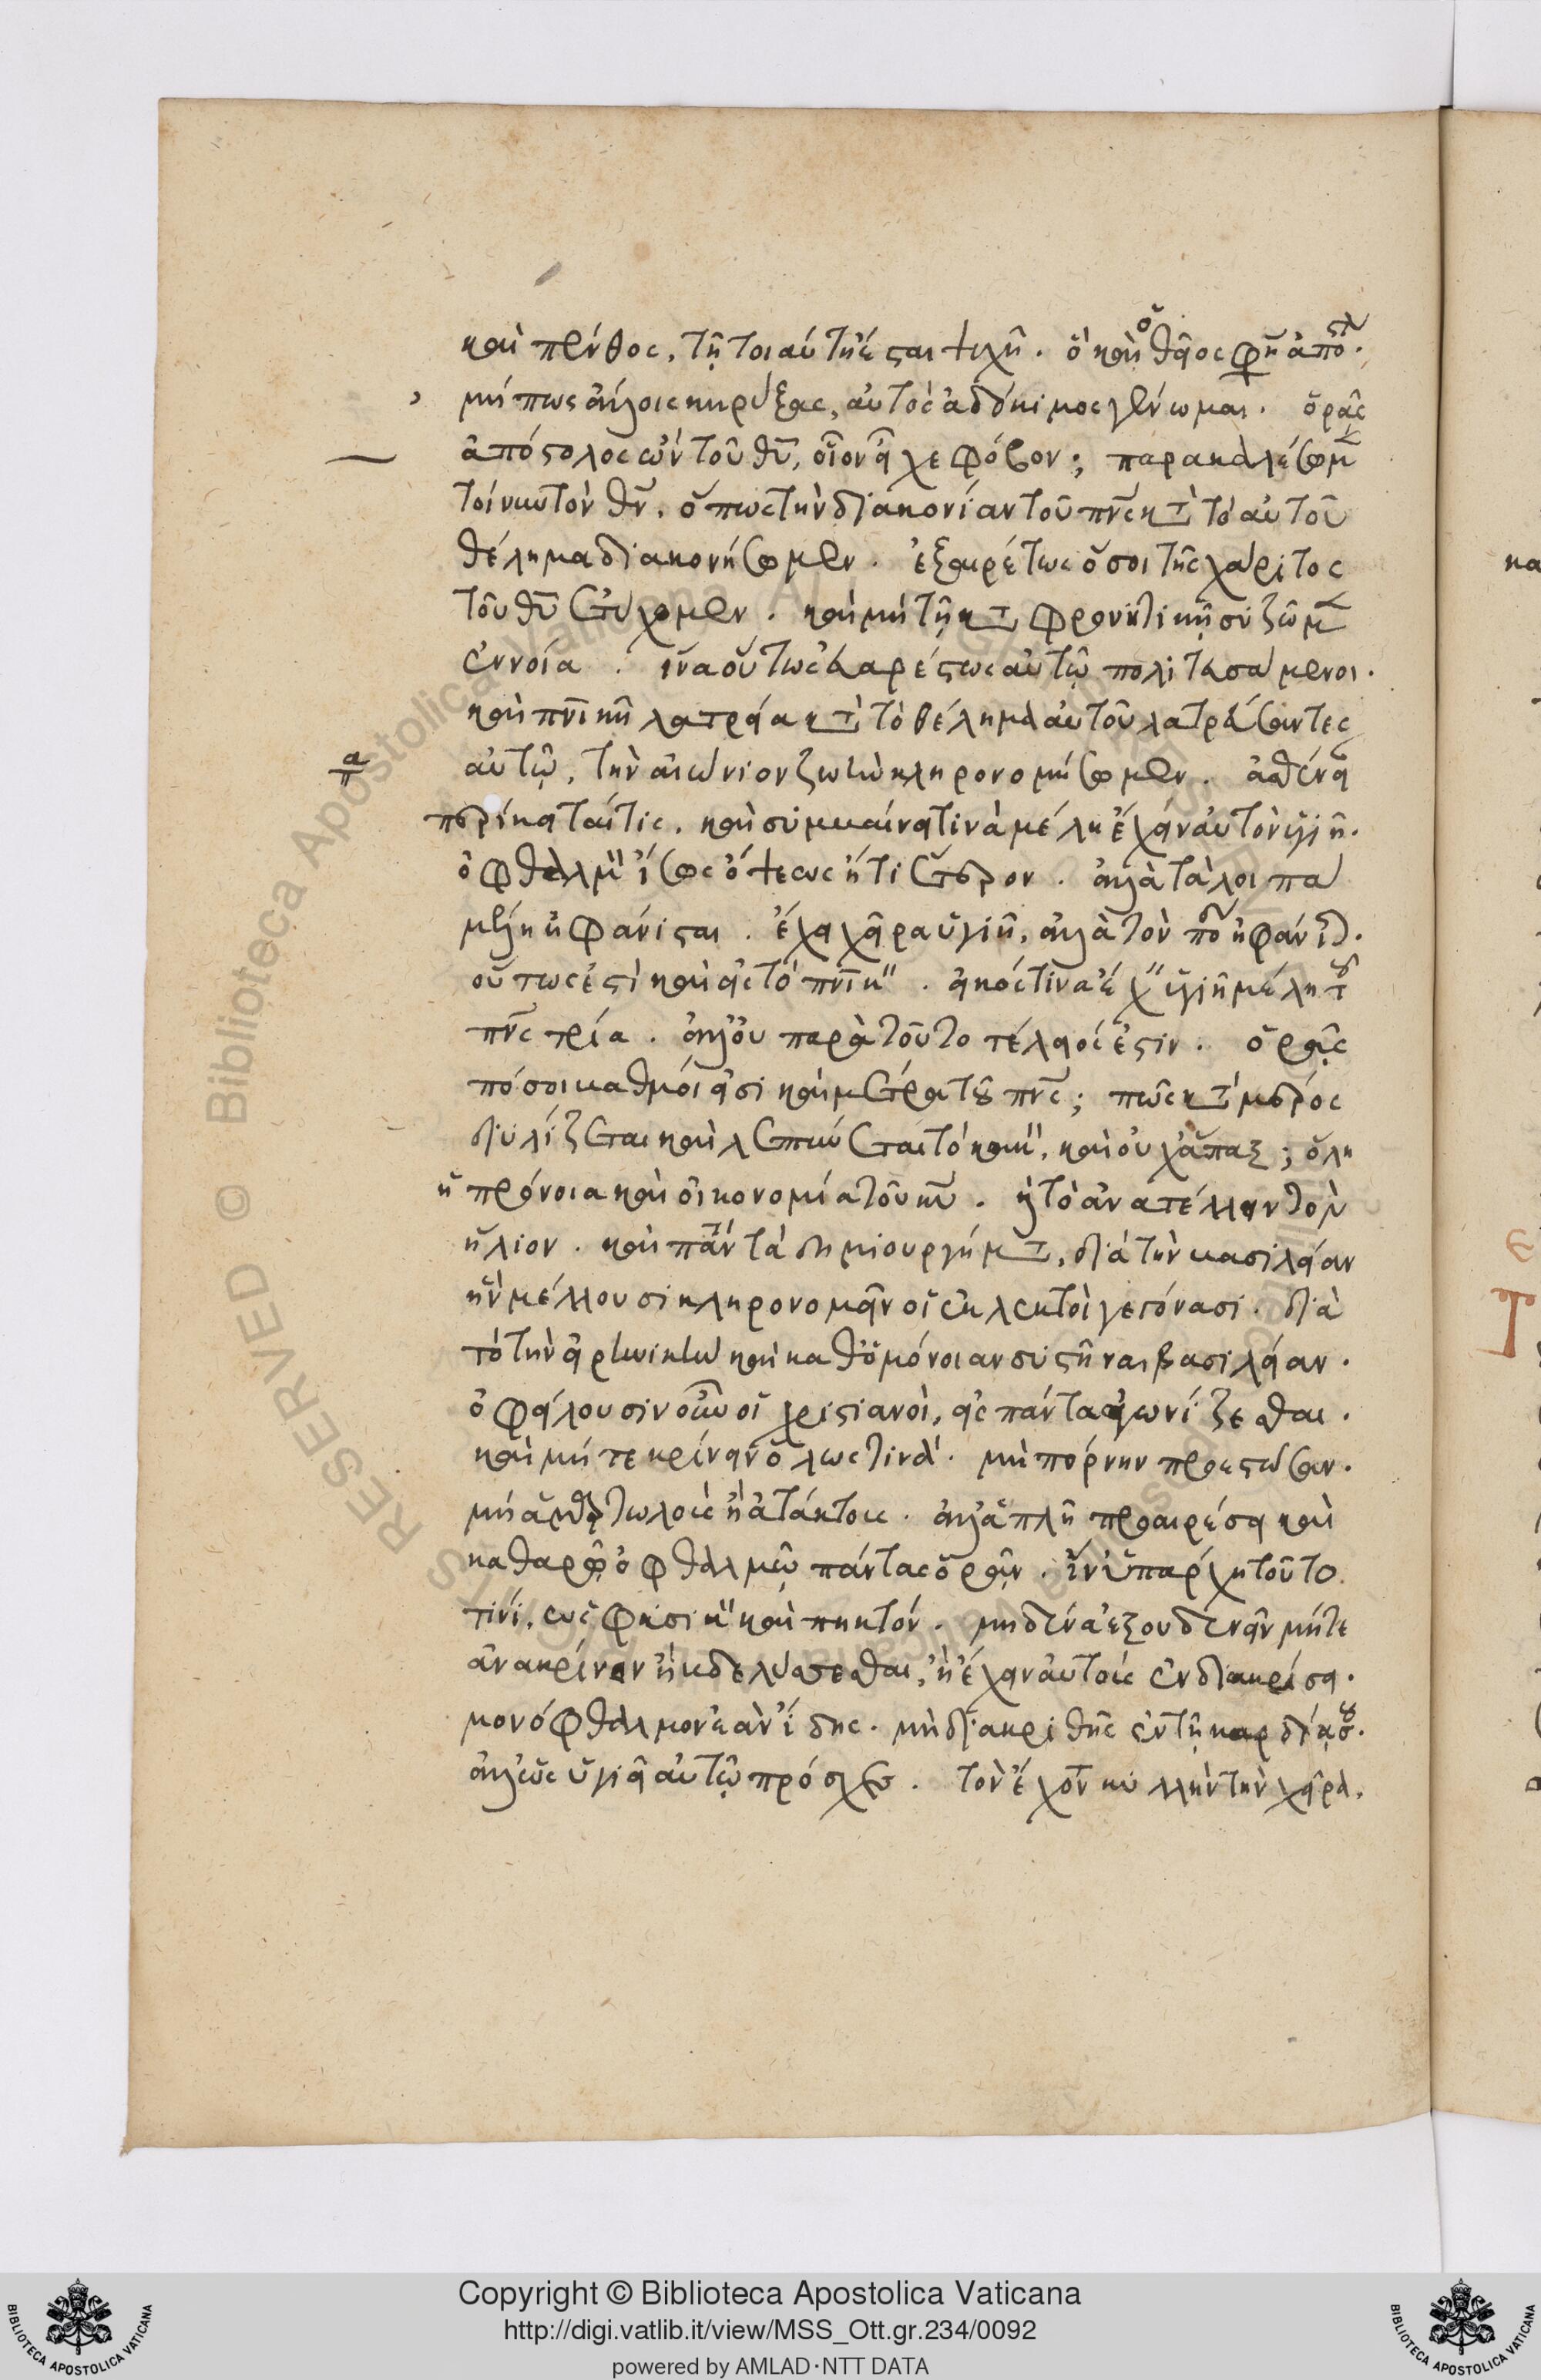 καὶ πένθος, τῆ τοιαύτη ἔσται ψυχῆ. ὃ καὶ ὁ θεῖος φησὶν ἀπόστολος.
μήπως ἄλλοις κηρύξας, αὐτὸς ἀδόκιμος γένωμαι. ὁρᾶς
ἀπόστολος ὢν τοῦ θῦ, οἷον εἶχε φόβον; παρακαλέσωμεν
τοίνυν τὸν θν̄, ὅπως τὴν διακονίαν τοῦ πνς κατὰ τὸ αὐτοῦ
θέλημα διακονήσωμεν. ἐξαιρέτως ὅσοι τῆς χάριτος
τοῦ θῦ ἐτύχομεν. καὶ μὴ τῆ κατὰ φρονητικῆ συζῶμεν
ἐννοία. ἵνα οὕτως εὐαρέστως αὐτῶ πολιτευσάμενοι.
καὶ πνικῆ λατρεία κατὰ τὸ θέλημα αὐτοῦ λατρεύσαντες
αὐτῶ, τὴν αἰώνιον ζωὴν κληρονομήσωμεν. ἀσθενεῖ
περικαταί τις, καὶ συμβαίνει τινὰ μέλη ἔχειν αὐτὸν ὑγιῆ.
ὀφθαλμ ἴσως ὄψεως ἤ τι ἕτερον. ἀλλὰ τὰ λοιπὰ
μέλη ἠφάνισται. ἔχει χεῖρα ὑγιῆ, ἀλλὰ τὸν πο ἠφάνισ.
οὕτως ἐστὶ καὶ εἰς τὸ πνικ. εἰκός τινα ἔχ ὑγιῆ μέλη τοῦ
πνς τρία. ἀλλ' οὐ παρὰ τοῦτο τέλειός ἐστιν. ὁρᾶς
πόσοι βαθμοί εἰσι καὶ μέτρα τοῦ πνς; πῶς κατὰ μέρος
διυλίζεται καὶ λεπτύνεται τὸ κακ, καὶ οὐχ ἅπαξ; ὅλη
ἡ πρόνοια καὶ οἰκονομία τοῦ κυ. ἢ τὸ ἀνατέλλειν τὸν
ἥλιον. καὶ πάντα τὰ δημιουργήματα, διὰ τὴν βασιλείαν
ἣν μέλλουσι κληρονομεῖν οἳ ἐκλεκτοὶ γεγόνασι. διὰ
τὸ τὴν εἰρηνικὴν καὶ καθ' ὁμόνοιαν συστῆναι βασιλείαν.
ὀφείλουσιν οὖν οἱ χριστιανοὶ, εἰς πάντα ἀγωνίζεσθαι.
καὶ μήτε κρίνειν ὅλως τινά. μὴ πόρνην προεστῶσαν.
μὴ ἁμαρτωλοὺς ἢ ἀτάκτοις. ἀλλ' ἁπλῆ προαιρέσει καὶ
καθαρῶ ὀφθαλμῶ πάντας ὁρᾶν. ἵν' ὑπάρχη τοῦτό
τινι, ὡς φυσικ καὶ πηκτόν. μηδένα ἐξουδενεῖν μήτε
ἀνακρίνειν ἢ βδελύσσεσθαι, ἢ ἔχειν αὐτοὺς ἐν διακρίσει.
μονόφθαλμον ἐὰν ἴδης. μὴ διακριθῆς ἐν τῆ καρδία σου.
ἀλλ' ὡς ὑγιεῖ αὐτῶ πρόσχες. τὸν ἔχοντα κυλλὴν τὴν χεῖρα.
Copyright © Biblioteca Apostolica Vaticana
http://digi.vatlib.it/view/MSS_Ott.gr.234/0092
powered by AMLAD·NTT DATA